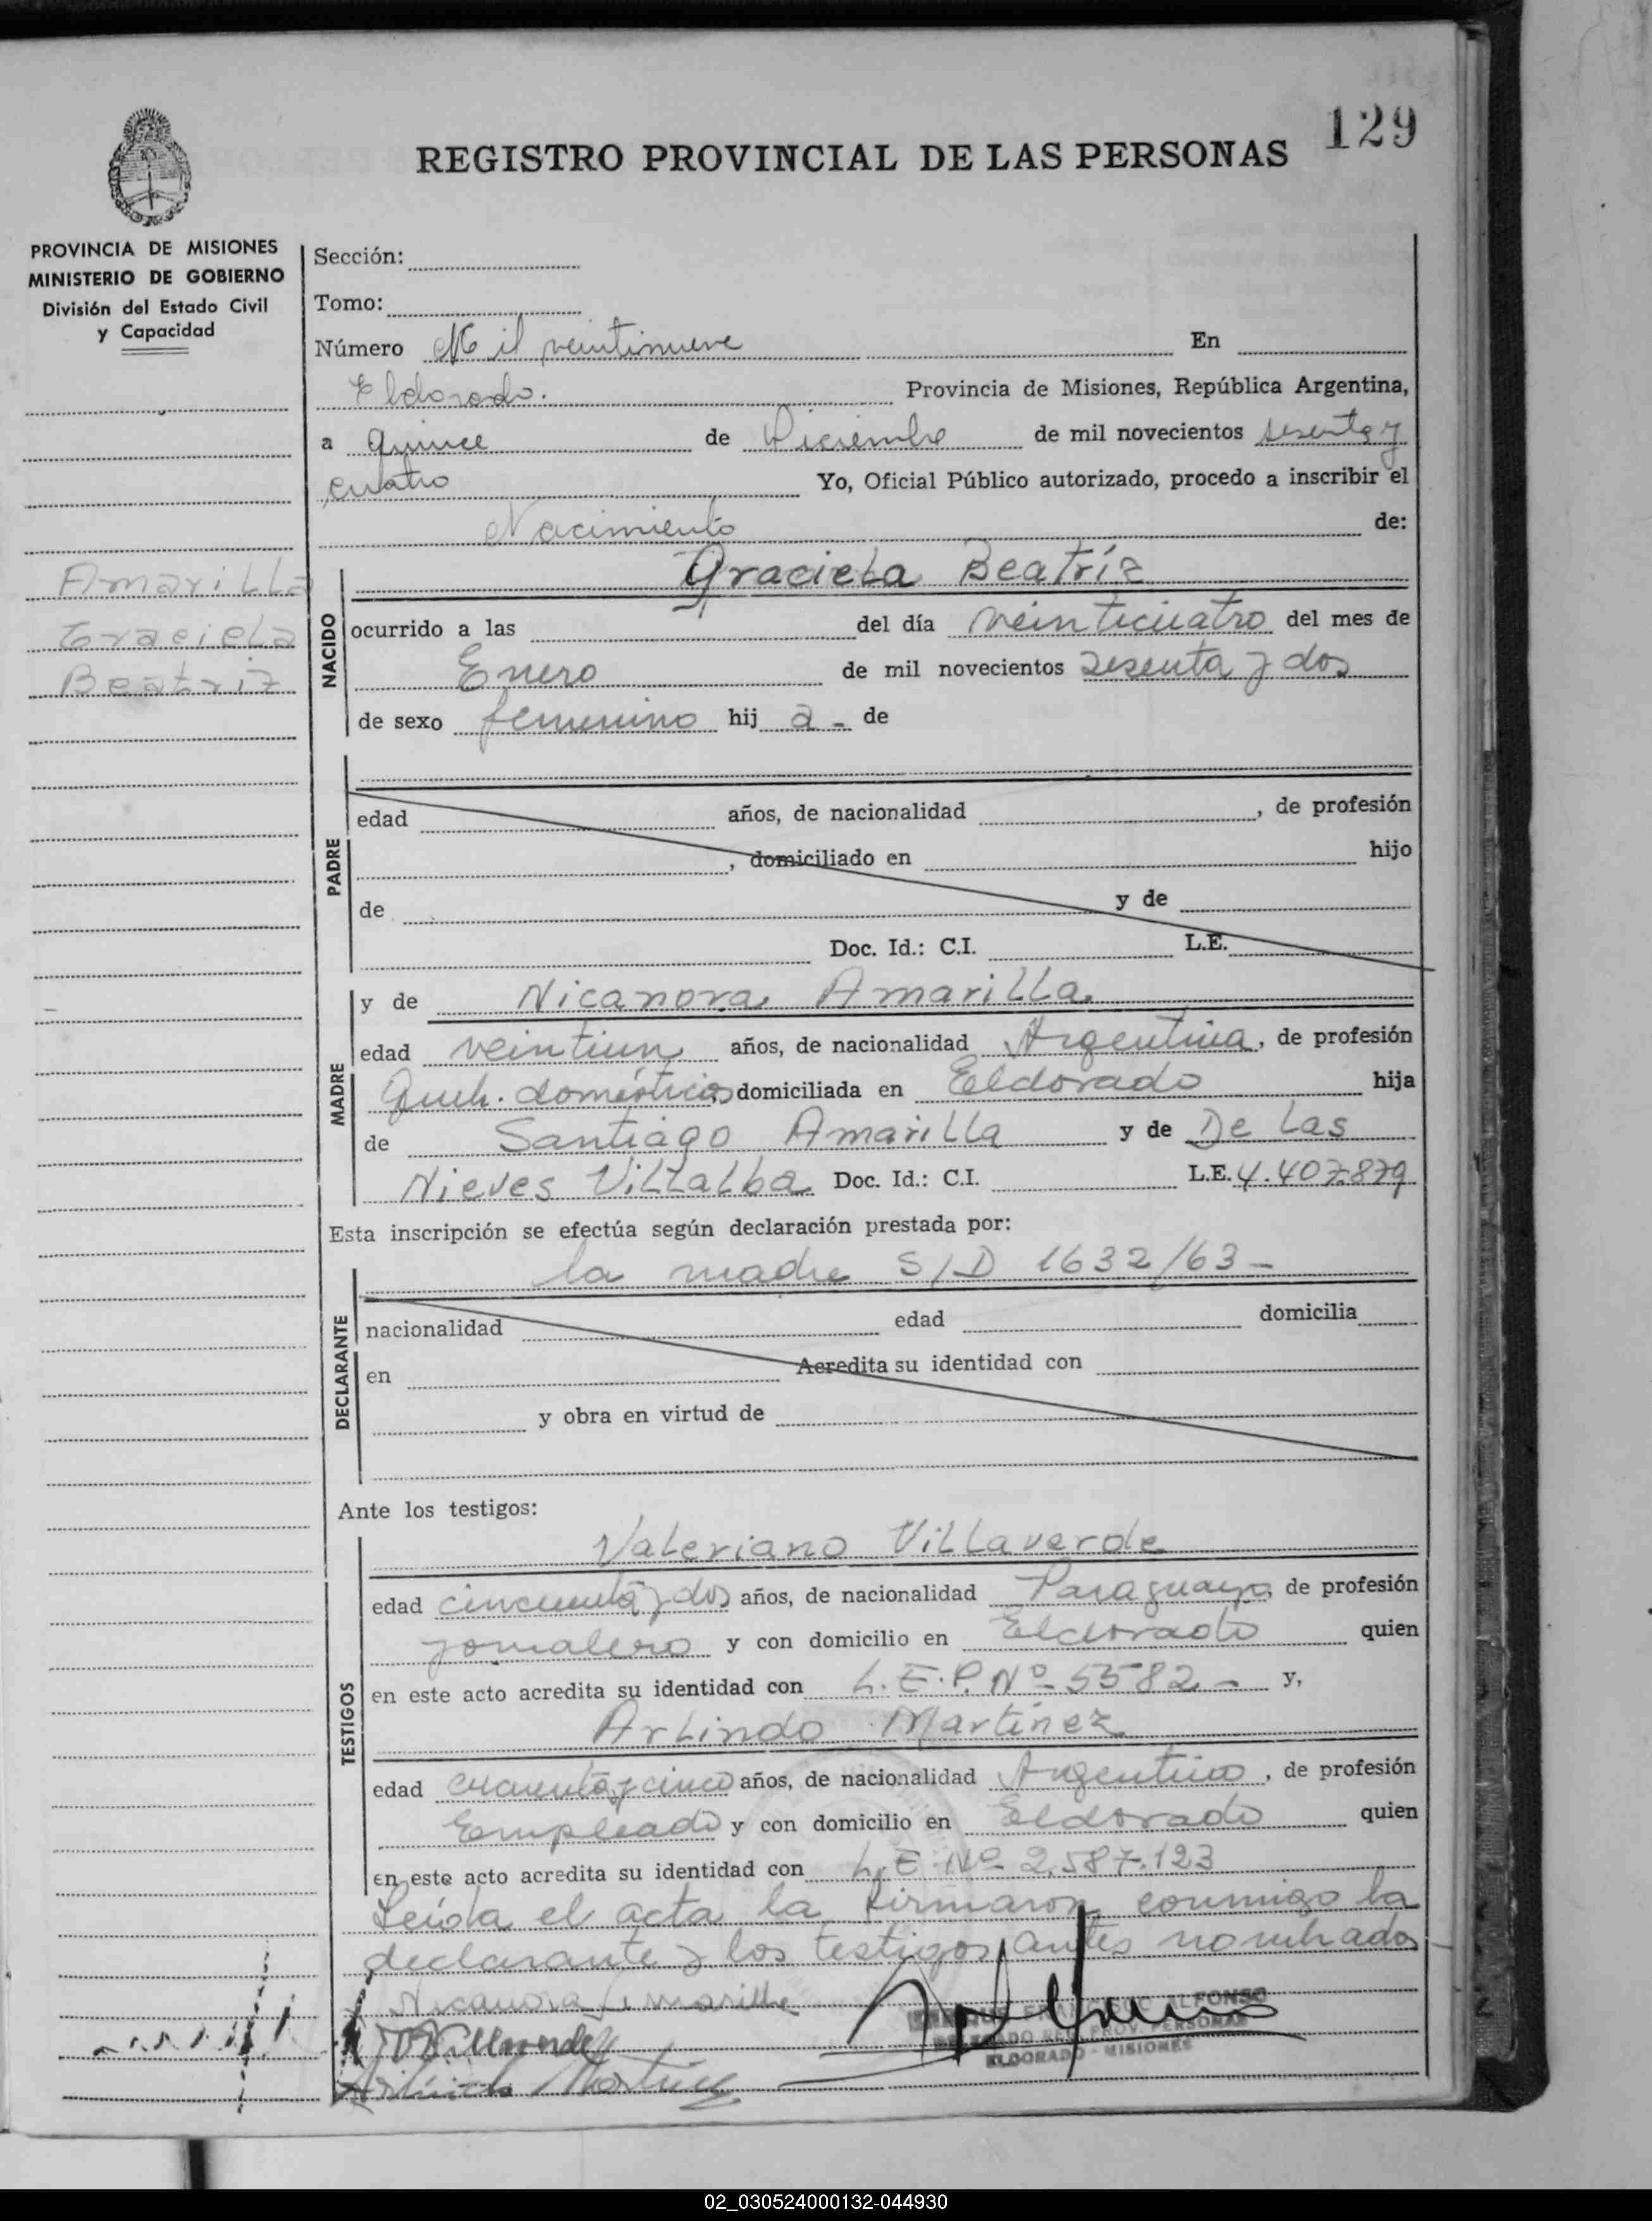 129
REGISTRO PROVINCIAL DE LAS PERSONAS
PROVINCIA DE MISIONES
MINISTERIO DE GOBIERNO
División del Estado Civil
y Capacidad
Amarilla
Graciela
Beatriz
Sección:
Tomo:
Número Mil veintinueve En
Eldorado. Provincia de Misiones, República Argentina,
a quince de Diciembre de mil novecientos sesenta y
cuatro Yo, Oficial Público autorizado, procedo a inscribir el
Nacimiento de:
NACIDO
Graciela Beatríz
ocurrido a las del día veinticuatro del mes de
Enero de mil novecientos sesenta y dos
de sexo femenino hij a - de
PADRE
edad años, de nacionalidad , de profesión
, domiciliado en hijo
de y de
Doc. Id.: C.I. L.E.
MADRE
y de Nicanora Amarilla
edad veintiun años, de nacionalidad Argentina, de profesión
Queh. domésticos domiciliada en Eldorado hija
de Santiago Amarilla y de De Las
Nieves Villalba Doc. Id.: C.I. L.E. 4.407.879
Esta inscripción se efectúa según declaración prestada por:
DECLARANTE
la madre S/D 1632/63 -
nacionalidad edad domicilia
en Acredita su identidad con
y obra en virtud de
Ante los testigos:
TESTIGOS
Valeriano Villaverde
edad cincuenta y dos años, de nacionalidad Paraguaya, de profesión
jornalero y con domicilio en Eldorado quien
en este acto acredita su identidad con L.E.P. Nº 5582 - y,
Arlindo Martinez
edad cuarenta y cinco años, de nacionalidad Argentino, de profesión
Empleado y con domicilio en Eldorado quien
en este acto acredita su identidad con L.E. Nº 2.587.123
Leída el acta la firmaron conmigo la
declarante y los testigos antes nombrados -
Nicanora Amarilla
Arlindo Martinez
FRANCISCO ALFONSO
REG. PROV. PERSONAS
ELDORADO - MISIONES
02_030524000132-044930